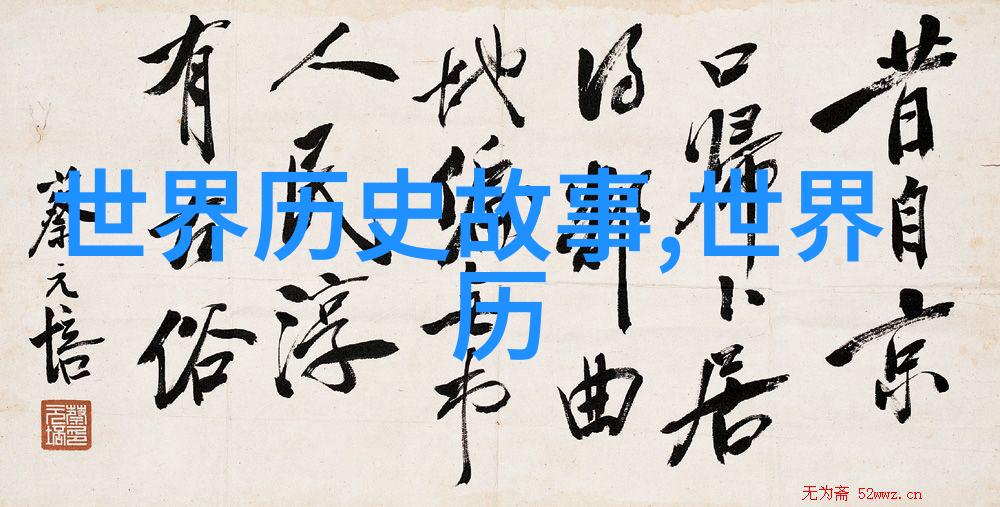 世界历史故事,世界
历
昔自京
口歸卜居
得 曲
地偏 市
人民淳
有古俗
蔡元培
无为斋 52wwz.cn